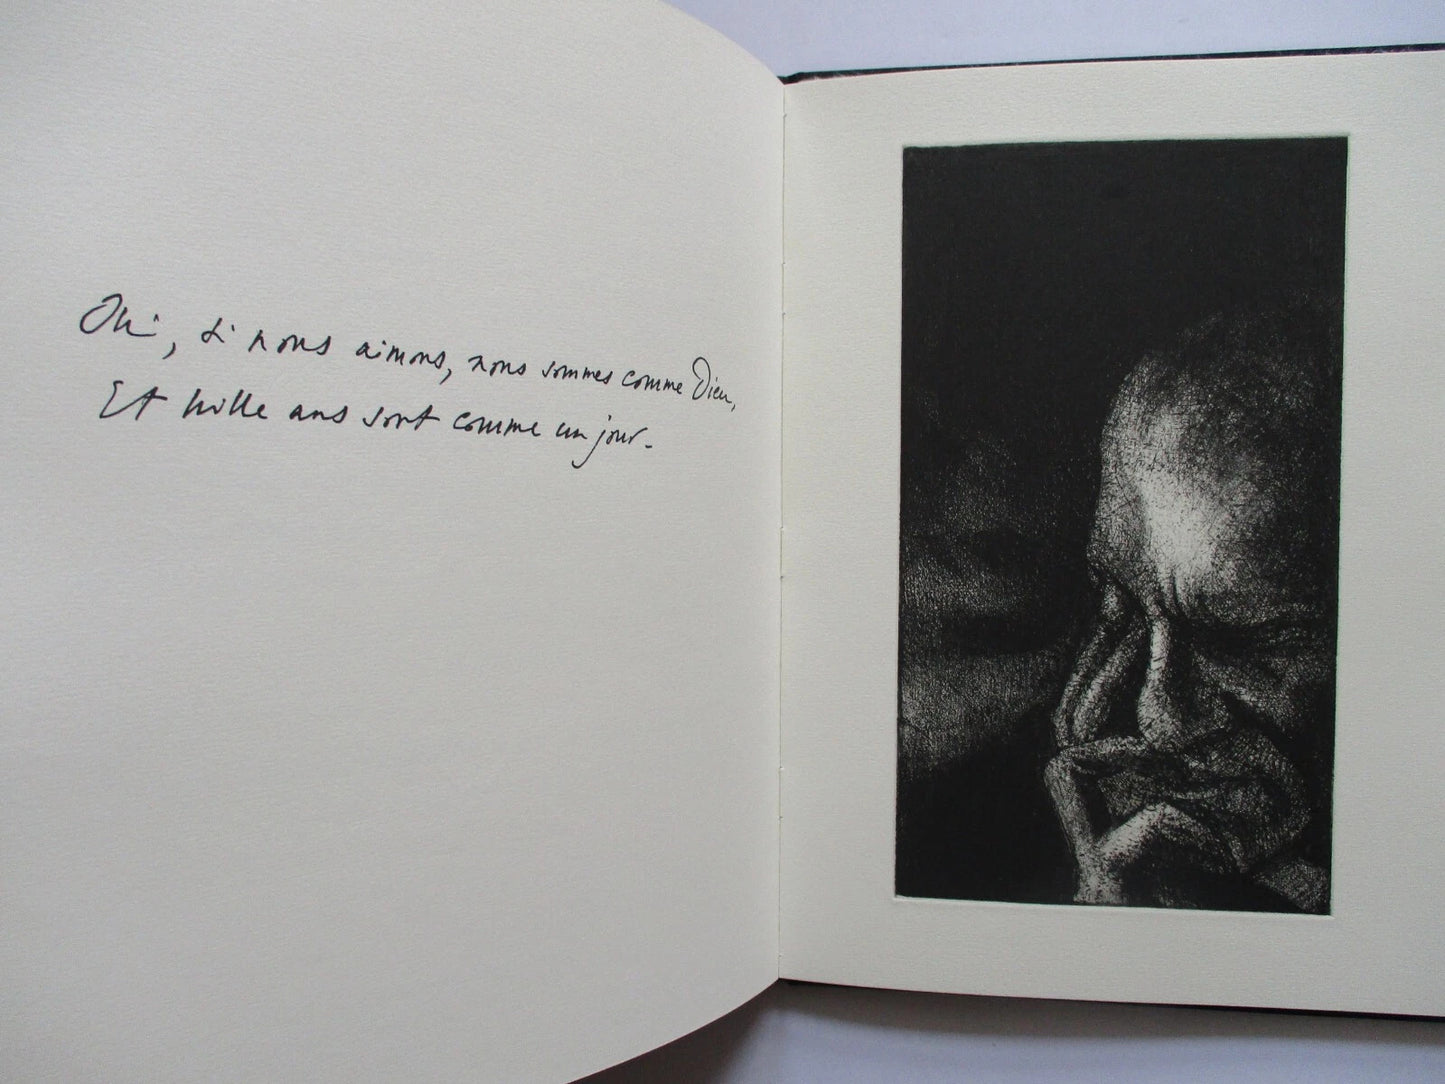 Oui, si nous aimons, nous sommes comme Dieu,
Et mille ans sont comme un jour.